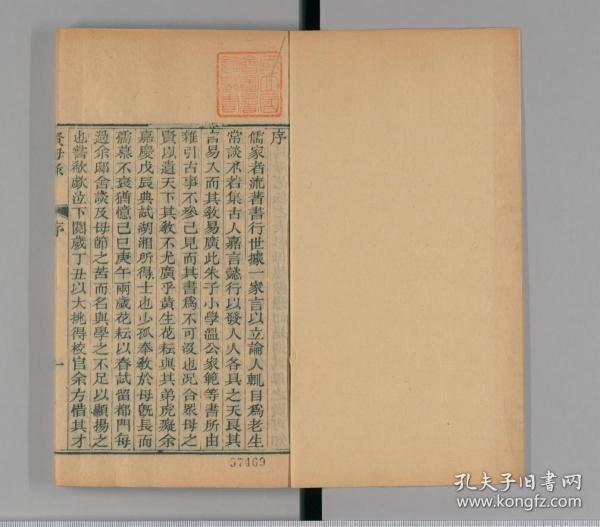 序
儒家者流著書行世據一家言以立論人輒目爲老生
常談不若集古人嘉言懿行以發人人各具之天良其
言易入而其敎易廣此朱子小學溫公家範等書所由
雜引古事不參己見而其書爲不可沒也況合衆母之
賢以遺天下其敎不尤廣乎黃生花耘與其弟虎癡余
嘉慶戊辰典試湖湘所得士也少孤奉敎於母旣長而
孺慕不衰猶憶己巳庚午兩歲花耘以春試留都門每
過余邸舍談及母節之苦而名與學之不足以顯揚之
也嘗欷歔泣下閱歲丁丑以大挑得校官余方惜其才
賢母錄
序
一
57469
孔夫子旧书网
kongfz.com